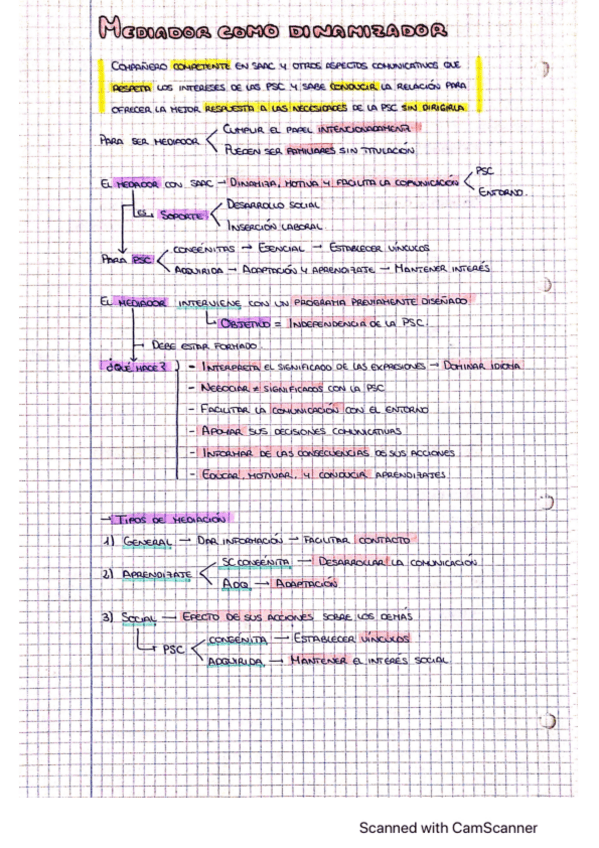 MEDIADOR COMO DINAMIZADOR
COMPAÑERO COMPETENTE EN SAAC Y OTROS ASPECTOS COMUNICATIVOS QUE
RESPETA LOS INTERESES DE LAS PSC Y SABE CONDUCIR LA RELACIÓN PARA
OFRECER LA MEJOR RESPUESTA A LAS NECESIDADES DE LA PSC SIN DIRIGIRLA
PARA SER MEDIADOR
CUMPLIR EL PAPEL INTENCIONADAMENTE
PUEDEN SER FAMILIARES SIN TITULACIÓN
EL MEDIADOR CON SAAC → DINAMIZA, MOTIVA Y FACILITA LA COMUNICACIÓN
PSC
ENTORNO.
ES SOPORTE
DESARROLLO SOCIAL
INSERCIÓN LABORAL
PARA PSC
CONGÉNITAS → ESENCIAL → ESTABLECER VÍNCULOS
ADQUIRIDA → ADAPTACIÓN Y APRENDIZAJE → MANTENER INTERÉS
EL MEDIADOR INTERVIENE CON UN PROGRAMA PREVIAMENTE DISEÑADO
OBJETIVO = INDEPENDENCIA DE LA PSC.
DEBE ESTAR FORMADO
¿QUÉ HACE?
- INTERPRETA EL SIGNIFICADO DE LAS EXPRESIONES → DOMINAR IDIOMA
- NEGOCIAR ≠ SIGNIFICADOS CON LA PSC
- FACILITAR LA COMUNICACIÓN CON EL ENTORNO
- APOYAR SUS DECISIONES COMUNICATIVAS
- INFORMAR DE LAS CONSECUENCIAS DE SUS ACCIONES
- EDUCAR, MOTIVAR, Y CONDUCIR APRENDIZAJES
→ TIPOS DE MEDIACIÓN
1) GENERAL → DAR INFORMACIÓN → FACILITAR CONTACTO
2) APRENDIZAJE
SC CONGÉNITA → DESARROLLAR LA COMUNICACIÓN
ADQ → ADAPTACIÓN
3) SOCIAL → EFECTO DE SUS ACCIONES SOBRE LOS DEMÁS
PSC
CONGÉNITA → ESTABLECER VÍNCULOS
ADQUIRIDA → MANTENER EL INTERÉS SOCIAL
Scanned with CamScanner